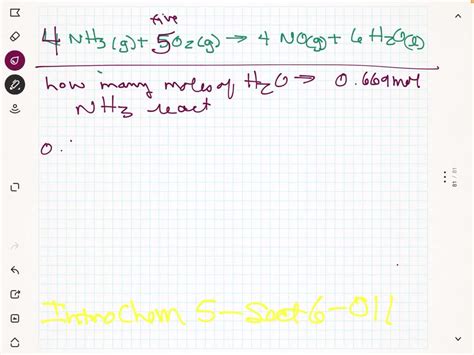 five
4 NH3(g) + 5O2(g) → 4 NO(g) + 6 H2O(l)
how many moles of H2O → 0.669 mol
NH3 react
0.
Intro Chem 5-Sect 6-011